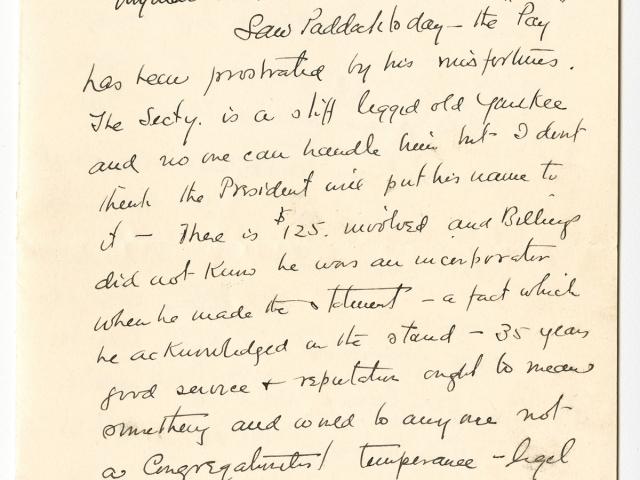 Saw Paddock to day - the Pay
has been prostrated by his misfortunes.
The Secty. is a stiff legged old Yankee
and no one can handle him but I dont
think the President will put his name to
it - There is $125. involved and Billings
did not know he was an incorporator
when he made the statement - a fact which
he acknowledged on the stand - 35 years
good service & reputation ought to mean
something and would to any one not
a Congregationalist temperance - legal